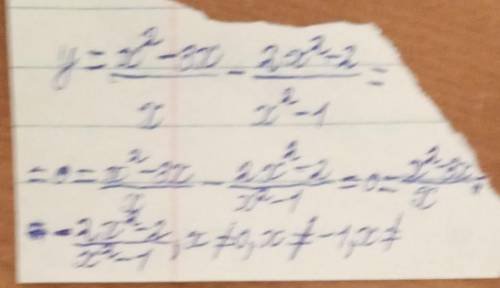 y = (x² - 3x)/x - (2x² - 2)/(x² - 1) =
= 0 = (x² - 3x)/x - (2x² - 2)/(x² - 1) = 0 = (x² - 3x)/x
= - (2x² - 2)/(x² - 1), x ≠ 0, x ≠ -1, x ≠